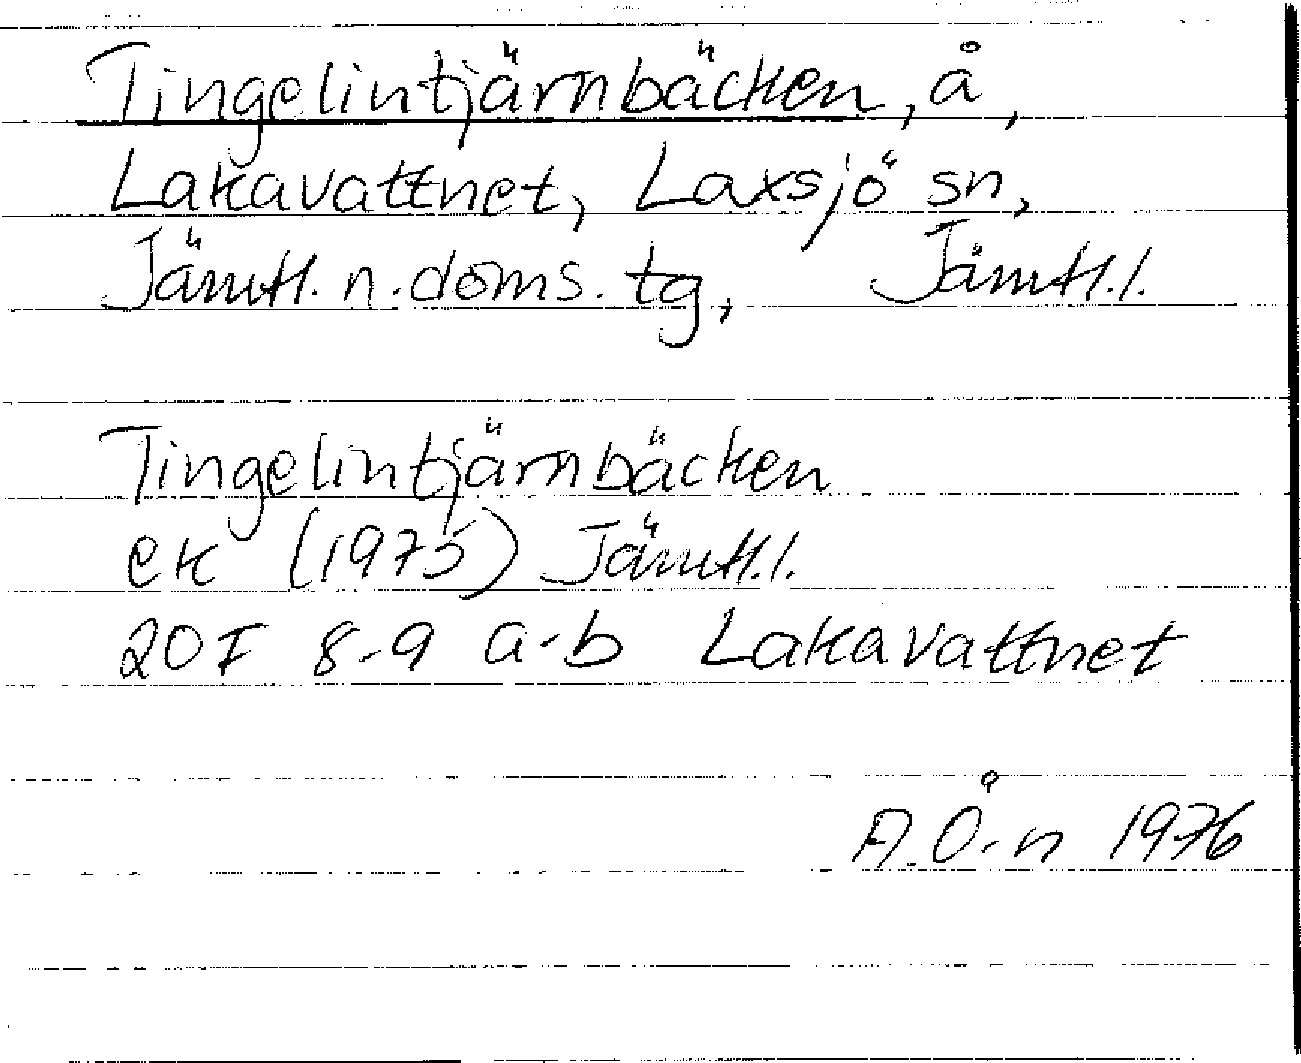 Tingelintjärnbäcken, å,
Lakavattnet, Laxsjö sn,
Jämtl. n. doms. tg, Jämtl.l.
Tingelintjärnbäcken
ek (1975) Jämtl.l.
20F 8-9 a-b Lakavattnet
A.Ö-n 1976